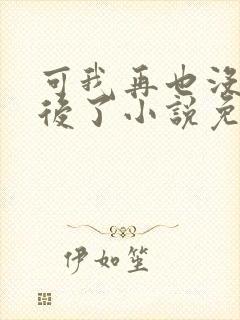 可我再也沒
後了小說免
伊如笙